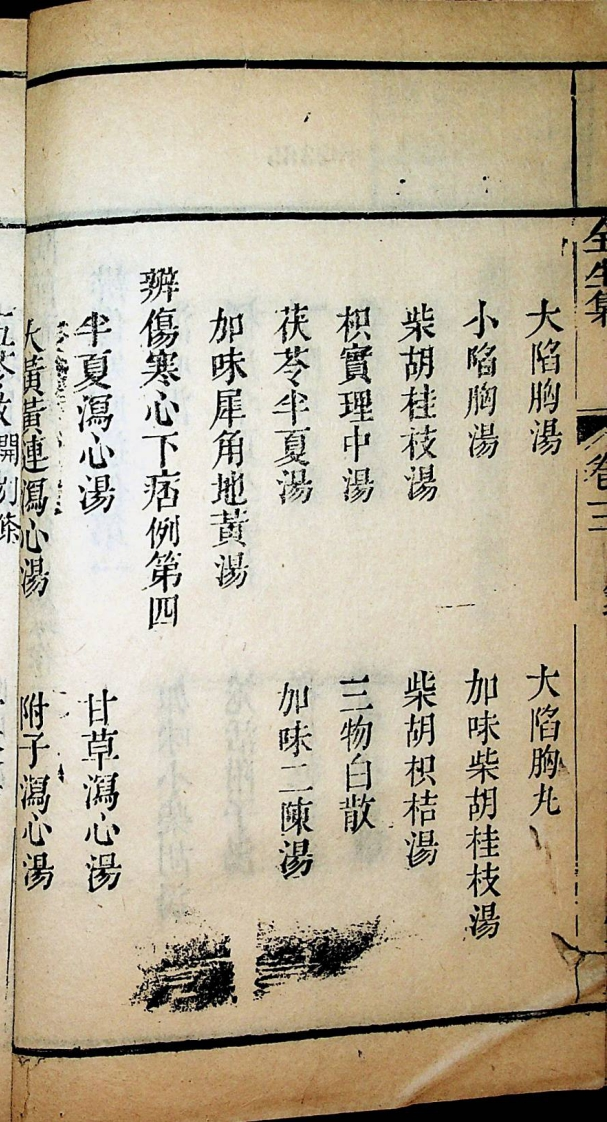 全生集
卷三
大陷胸湯
大陷胸丸
小陷胸湯
加味柴胡桂枝湯
柴胡桂枝湯
柴胡枳桔湯
枳實理中湯
三物白散
茯苓半夏湯
加味二陳湯
加味犀角地黃湯
辨傷寒心下痞例第四
半夏瀉心湯
甘草瀉心湯
大黃黃連瀉心湯
附子瀉心湯